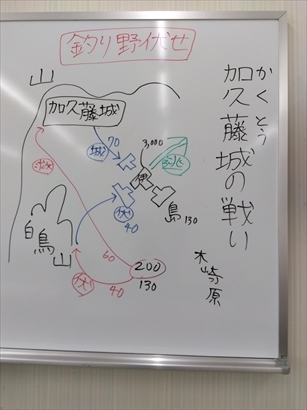 釣り野伏せ
かくとう
加久藤城の戦い
木崎原
山
加久藤城
城
70
3,000
伊
伏
40
島 130
白鳥山
60
200
130
伏
40